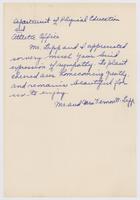 Department of Physical Education
and
Athletic Office
Mr. Lipp and I appreciated
so very much your kind
expression of sympathy. The plant
cheered our homecoming greatly
and remains beautiful for
us to enjoy.
Mr. and Mrs. Lipp